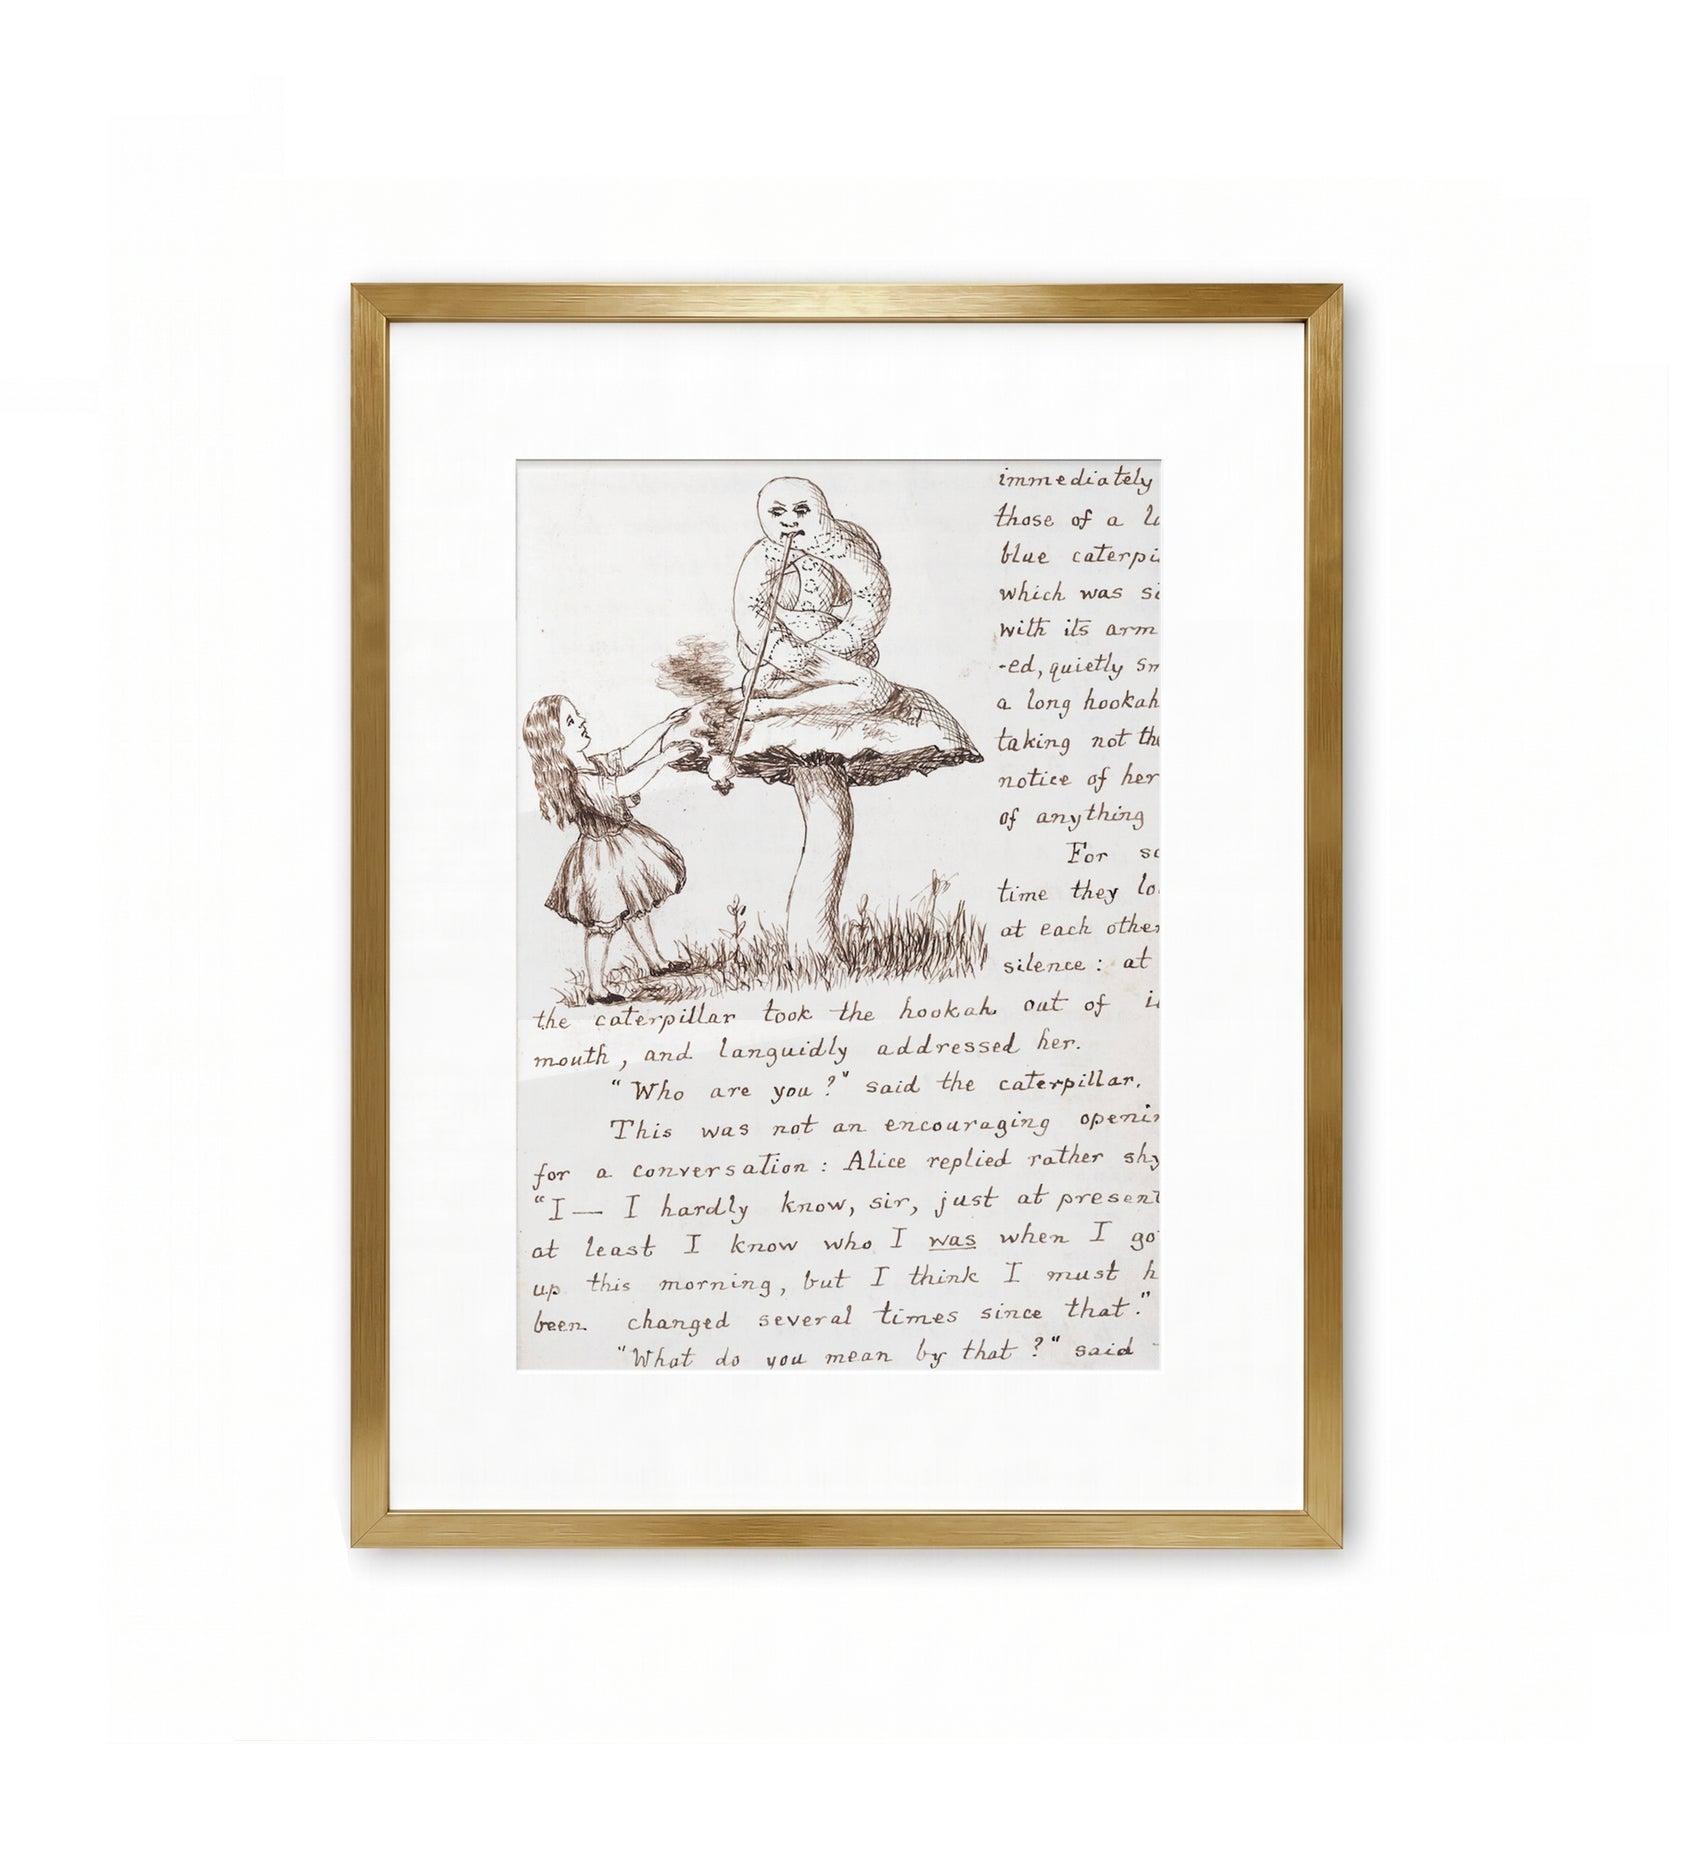 immediately
those of a
blue
which was
with its arm
-ed, quietly
a long hookah
taking not
notice of her
of anything
For
time they
at each other
silence : at
the caterpillar took the hookah out of
mouth, and languidly addressed her.
"Who are you?" said the caterpillar.
This was not an encouraging
for a conversation : Alice replied rather
"I — I hardly know, sir, just at present
at least I know who I was when I
up this morning, but I think I must
been changed several times since that."
"What do you mean by that?" said